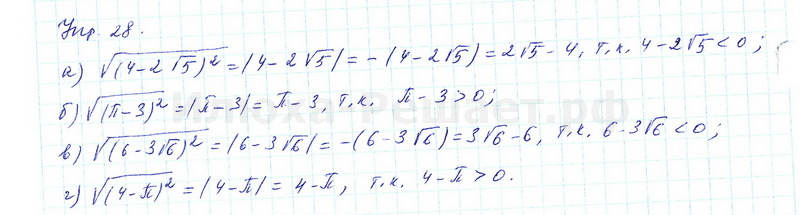 Упр. 28.
а) √(4-2√5)² = |4-2√5| = -(4-2√5) = 2√5-4, т.к. 4-2√5<0;
б) √(π-3)² = |π-3| = π-3, т.к. π-3>0;
в) √(6-3√6)² = |6-3√6| = -(6-3√6) = 3√6-6, т.к. 6-3√6<0;
г) √(4-π)² = |4-π| = 4-π, т.к. 4-π>0.